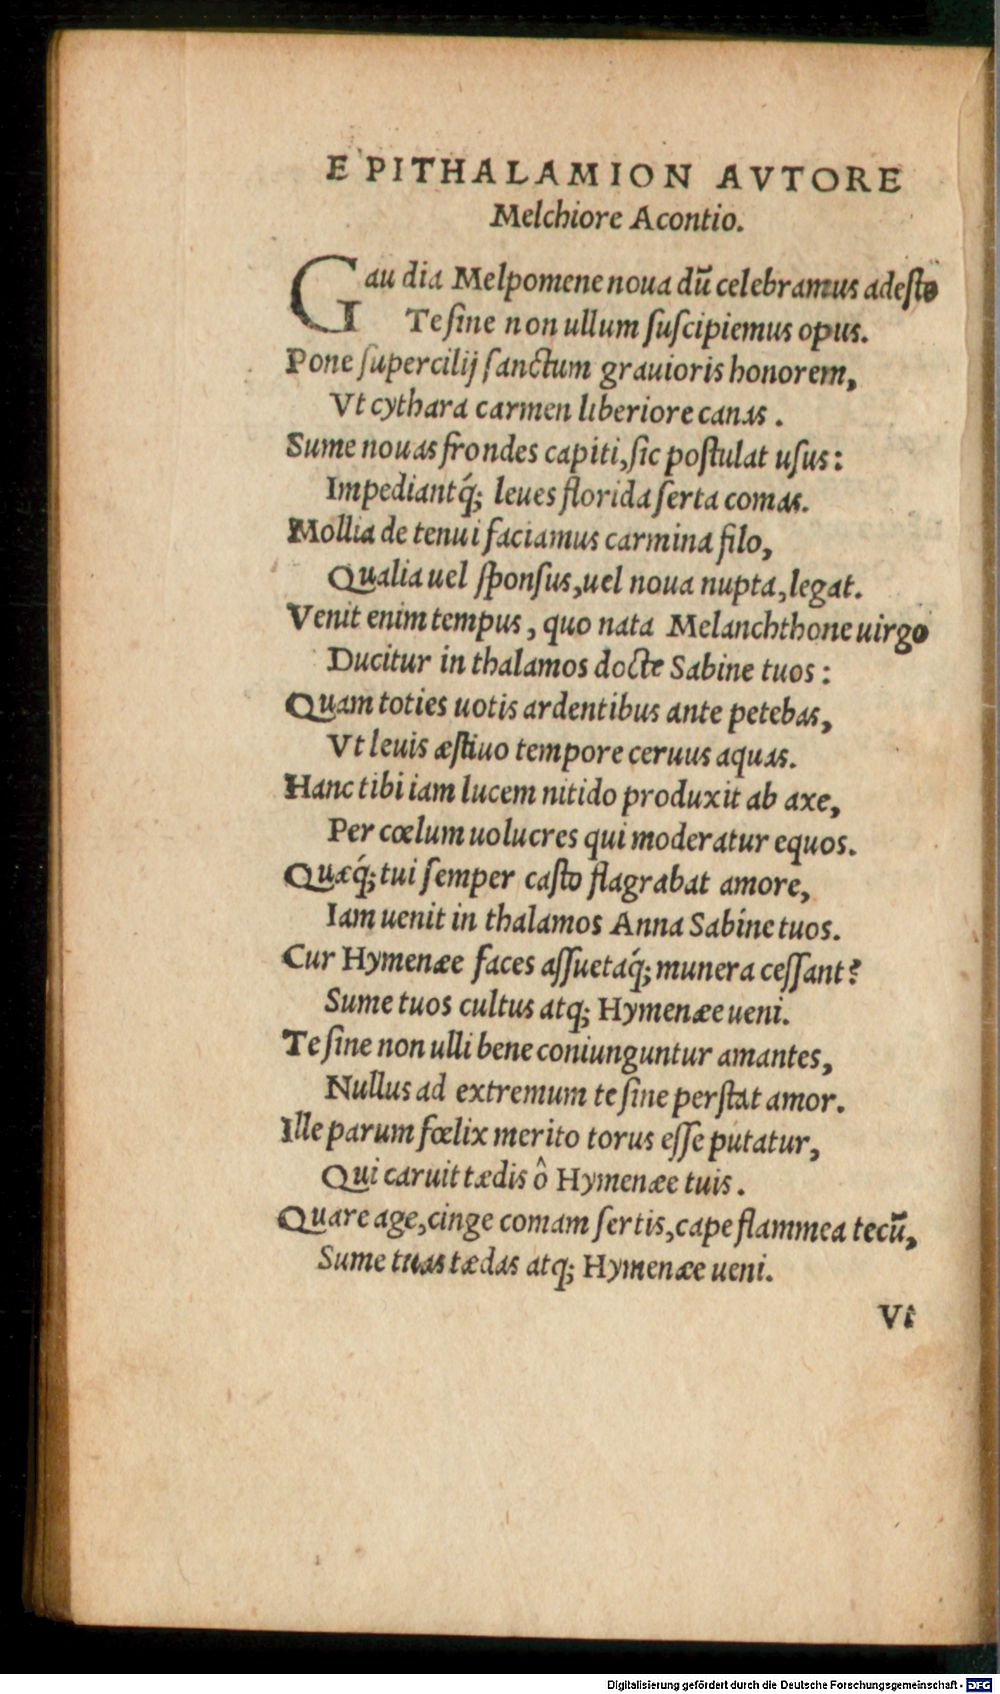 EPITHALAMION AVTORE
Melchiore Acontio.
Gaudia Melpomene noua dũ celebramus adesto
Te sine non ullum suscipiemus opus.
Pone supercilij sanctum grauioris honorem,
Vt cythara carmen liberiore canas.
Sume nouas frondes capiti, sic postulat usus:
Impediantq́; leues florida serta comas.
Mollia de tenui faciamus carmina filo,
Qualia uel sponsus, uel noua nupta, legat.
Venit enim tempus, quo nata Melanchthone uirgo
Ducitur in thalamos docte Sabine tuos:
Quam toties uotis ardentibus ante petebas,
Vt leuis æstiuo tempore ceruus aquas.
Hanc tibi iam lucem nitido produxit ab axe,
Per cœlum uolucres qui moderatur equos.
Quæq́; tui semper casto flagrabat amore,
Iam uenit in thalamos Anna Sabine tuos.
Cur Hymenæe faces assuetaq́; munera cessant?
Sume tuos cultus atq; Hymenæe ueni.
Te sine non ulli bene coniunguntur amantes,
Nullus ad extremum te sine perstat amor.
Ille parum fœlix merito torus esse putatur,
Qui caruit tædis ô Hymenæe tuis.
Quare age, cinge comam sertis, cape flammea tecũ,
Sume tuas tædas atq; Hymenæe ueni.
Vt
Digitalisierung gefördert durch die Deutsche Forschungsgemeinschaft - DFG